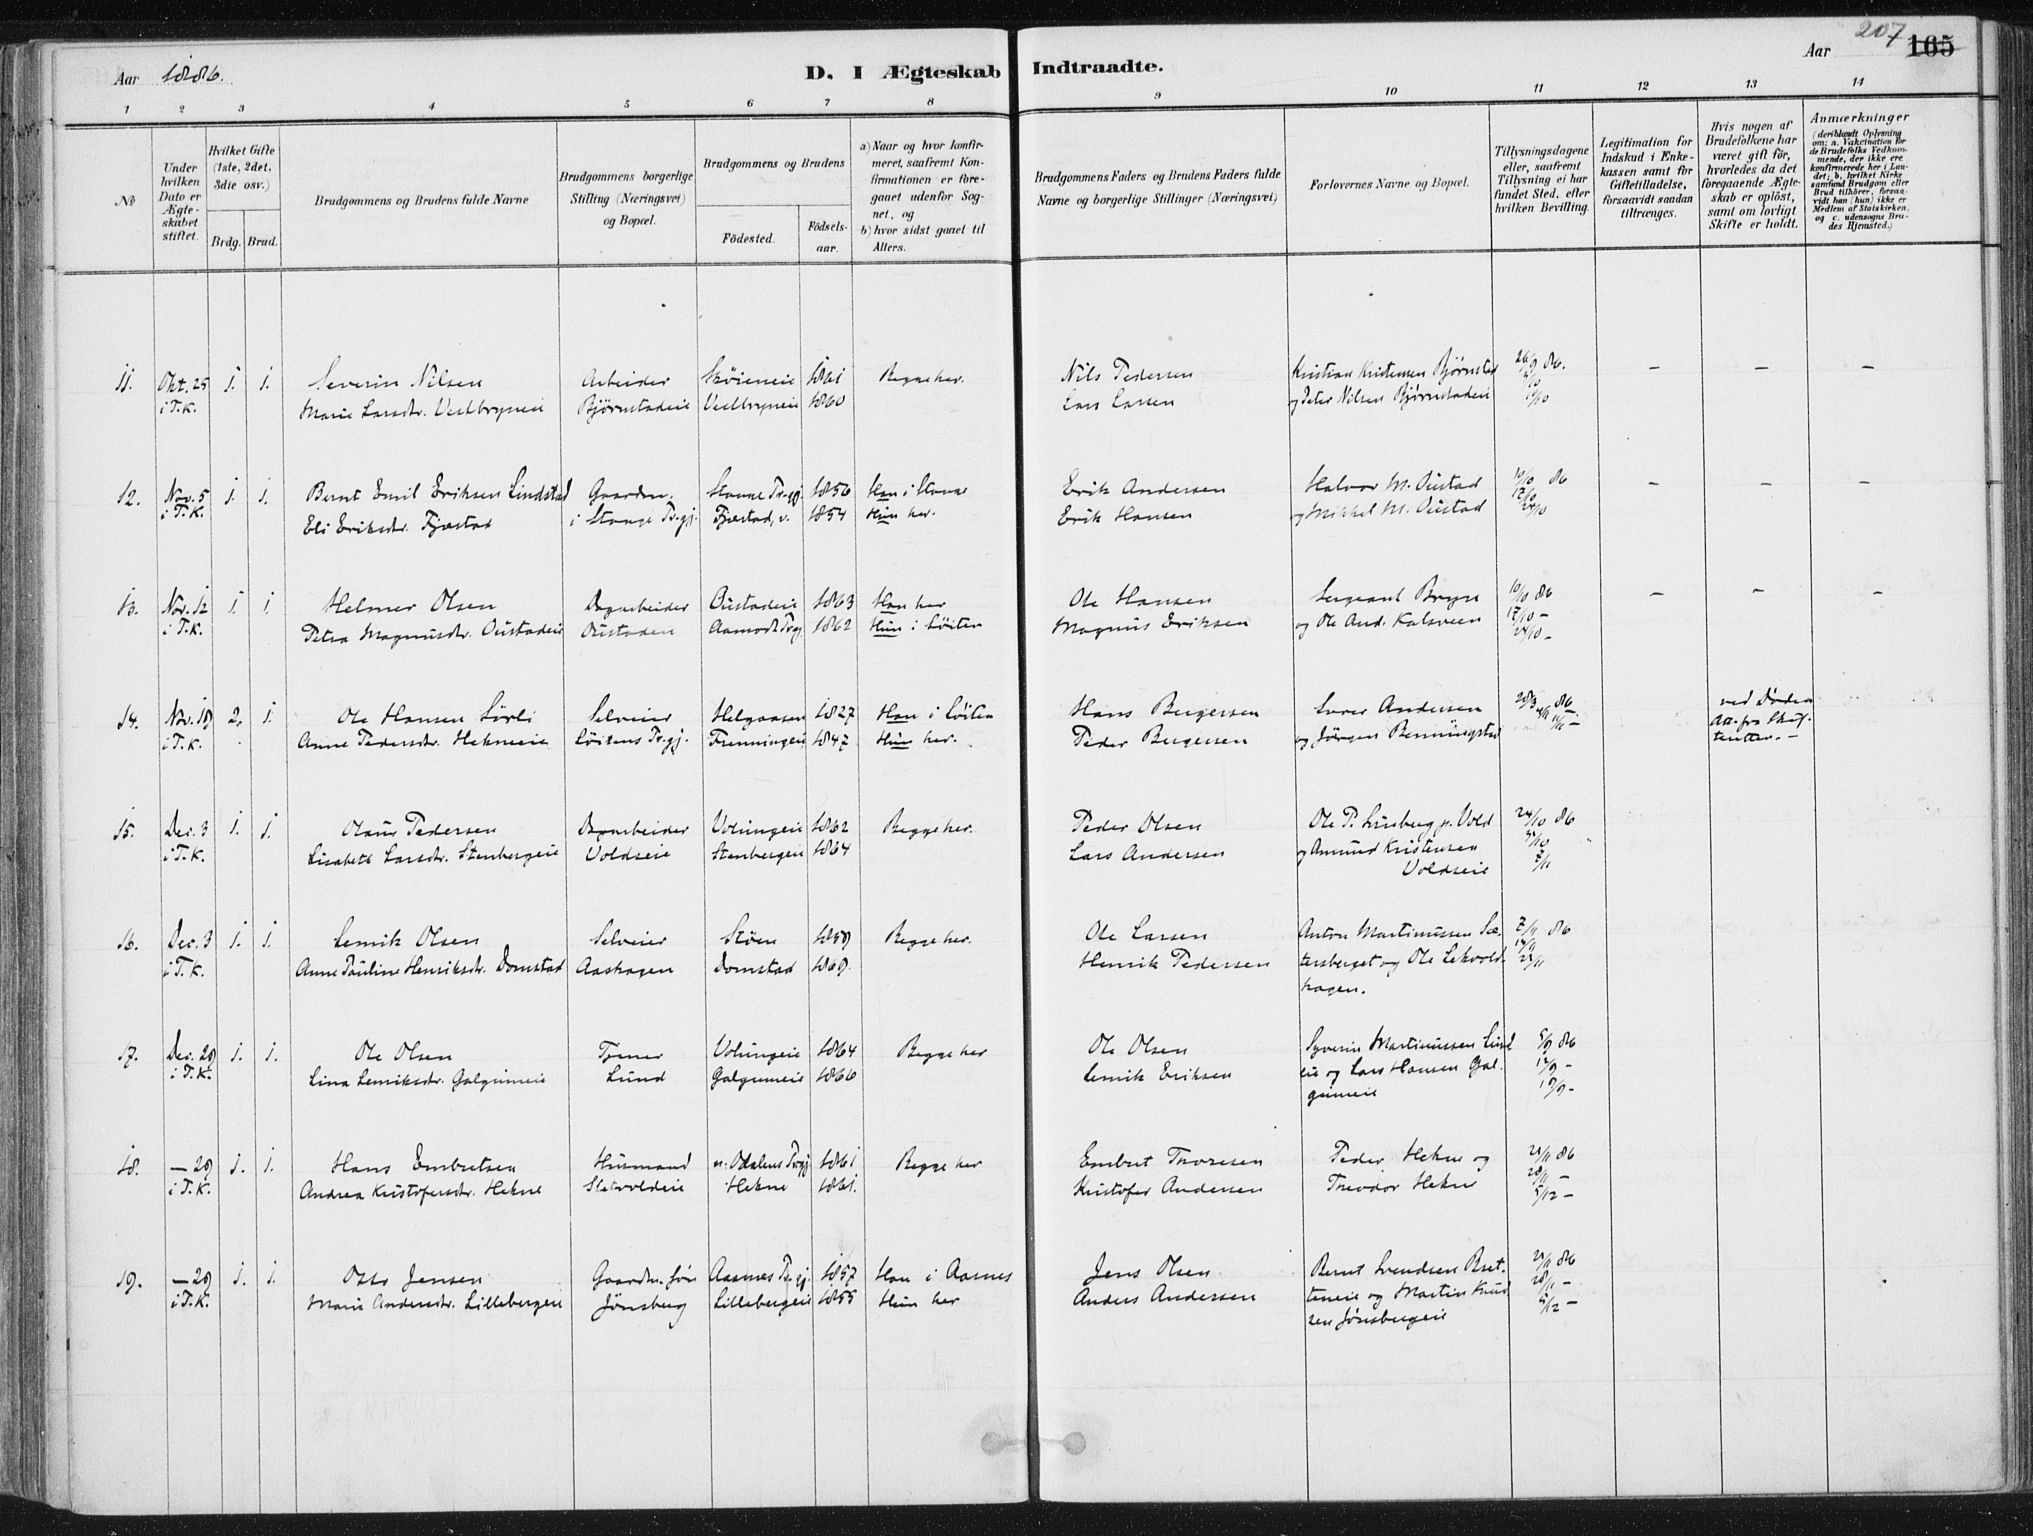 Aar 1886. D. I Ægteskab Indtraadte. Aar 207 165
1 2 3 4 5 6 7 8 9 10 11 12 13 14
№
Under hvilken Dato er Ægteskabet stiftet.
Hvilket Gifte (1ste, 2det, 3die osv.)
Brdg. Brud.
Brudgommens og Brudens fulde Navne
Brudgommens borgerlige Stilling (Næringsvei) og Bopæl.
Brudgommens og Brudens
Födested. Födsels-aar.
a) Naar og hvor konfirmeret, saafremt Konfirmationen er foregaaet udenfor Sognet, og
b) hvor sidst gaaet til Alters.
Brudgommens Faders og Brudens Faders fulde Navne og borgerlige Stillinger (Næringsvei)
Forlovernes Navne og Bopæl.
Tillysningsdagene eller, saafremt Tillysning ei har fundet Sted, efter hvilken Bevilling.
Legitimation for Indskud i Enkekassen samt for Giftetilladelse, forsaavidt saadan tiltrænges.
Hvis nogen af Brudefolkene har været gift för, hvorledes da det foregaaende Ægteskab er oplöst, samt om lovligt Skifte er holdt.
Anmærkninger
(deriblandt Oplysning om: a. Vakcination for de Brudefolks Vedkommende, der ikke ere konfirmerede her i Landet; b. hvilket Kirkesamfund Brudgom eller Brud tilhörer, forsaavidt han (hun) ikke er Medlem af Statskirken, og c. udensogns Brudes Hjemsted.)
11. Okt. 25 1. 1. Severin Nilsen Arbeider Sköieneie 1861 Begge her. Nils Pedersen Kristian Kristensen Bjørnstad 26/9 86. — — —
i T.K. Marie Larsdr. Vestbryneie Bjørnstadeie Vestbryneie 1860 Lars Larsen og Peter Nilsen Bjørnstadeie 10/10
12. Nov. 5 1. 1. Bernt Emil Eriksen Lindstad Gaardm. Stange Pr.gj. 1856 Han i Stange Erik Andersen Halvor M. Oustad 10/10 86 — — —
i T.K. Eli Eriksdr. Fjæstad i Stange Pr.gj. Fjæstad, v. 1854 Hun her. Erik Hansen og Mikkel M. Oustad 17/10 24/10
13. Nov. 12 1. 1. Helmer Olsen Dagarbeider Oustadeie 1863 Han her Ole Hansen Sergeant Bryn 10/10 86 — — —
i T.K. Petra Magnusdr. Oustadeie Oustaden Aamodt Prgj. 1862 Hun i Löiten Magnus Eriksen og Ole And. Kalsveen 17/10 — 24/10 —
14. Nov. 19 2. 1. Ole Hansen Sörli Selveier Helgaasen 1827 Han i Löiten Hans Bergersen Iver Andersen 86 ved Döden
i T.K. Anne Pedersdr. Hekneeie Löitens Pr.gj. 1847 Hun her. Peder Bergersen og Jörgen Benningstad Att. fra Skifteretten. —
15. Dec. 3 1. 1. Olaus Pedersen Dagarbeider Volungeie 1862 Begge her. Peder Olsen Ole P. Lusberg p. Vold 24/10 86
i T.K. Lisabeth Larsdr. Stenbergeie Voldseie Stenbergeie 1864 Lars Andersen og Amund Kristensen 31/10
Voldseie 7/11
16. Dec. 3 1. 1. Lemik Olsen Selveier Stöen 1859 Begge her. Ole Larsen Anton Martinussen Sæ- 7/11 86
i T.K. Anne Pauline Henriksdr. Domstad Aashagen Domstad 1869. Henrik Pedersen tersberget og Ole Lekvold- 14/11
hagen. 21/11
17. Dec. 29 1. 1. Ole Olsen Tjener Volungeie 1864 Begge her Ole Olsen Syverin Martinussen Lund 5/9 86
i T.K. Lina Lemiksdr. Galguneie Lund Galguneie 1866 Lemik Eriksen eie og Lars Hansen Gal- 12/9 —
guneie 19/9 —
18. — 29 1. 1. Hans Embretsen Husmand n. Odalens Prgj. 1861 Begge her Embret Thoresen Peder Hekne og 21/11 86
i T.K. Andrea Kristofersdr. Hekne Sletvoldeie Hekne 1861. Kristofer Andersen Theodor Hekne 28/11 — 5/12 —
19. — 29 1. 1. Otto Jensen Gaardm. sön Aasnes Pr.gj. 1857 Han i Aasnes Jens Olsen Bernt Svendsen Bret- 21/11 86
i T.K. Marie Andersdr. Lillebergeie Jönsberg Lillebergeie 1855 Hun her Anders Andersen teneie og Martin Knud 28/11 —
sen Jönsbergeie 5/12 —